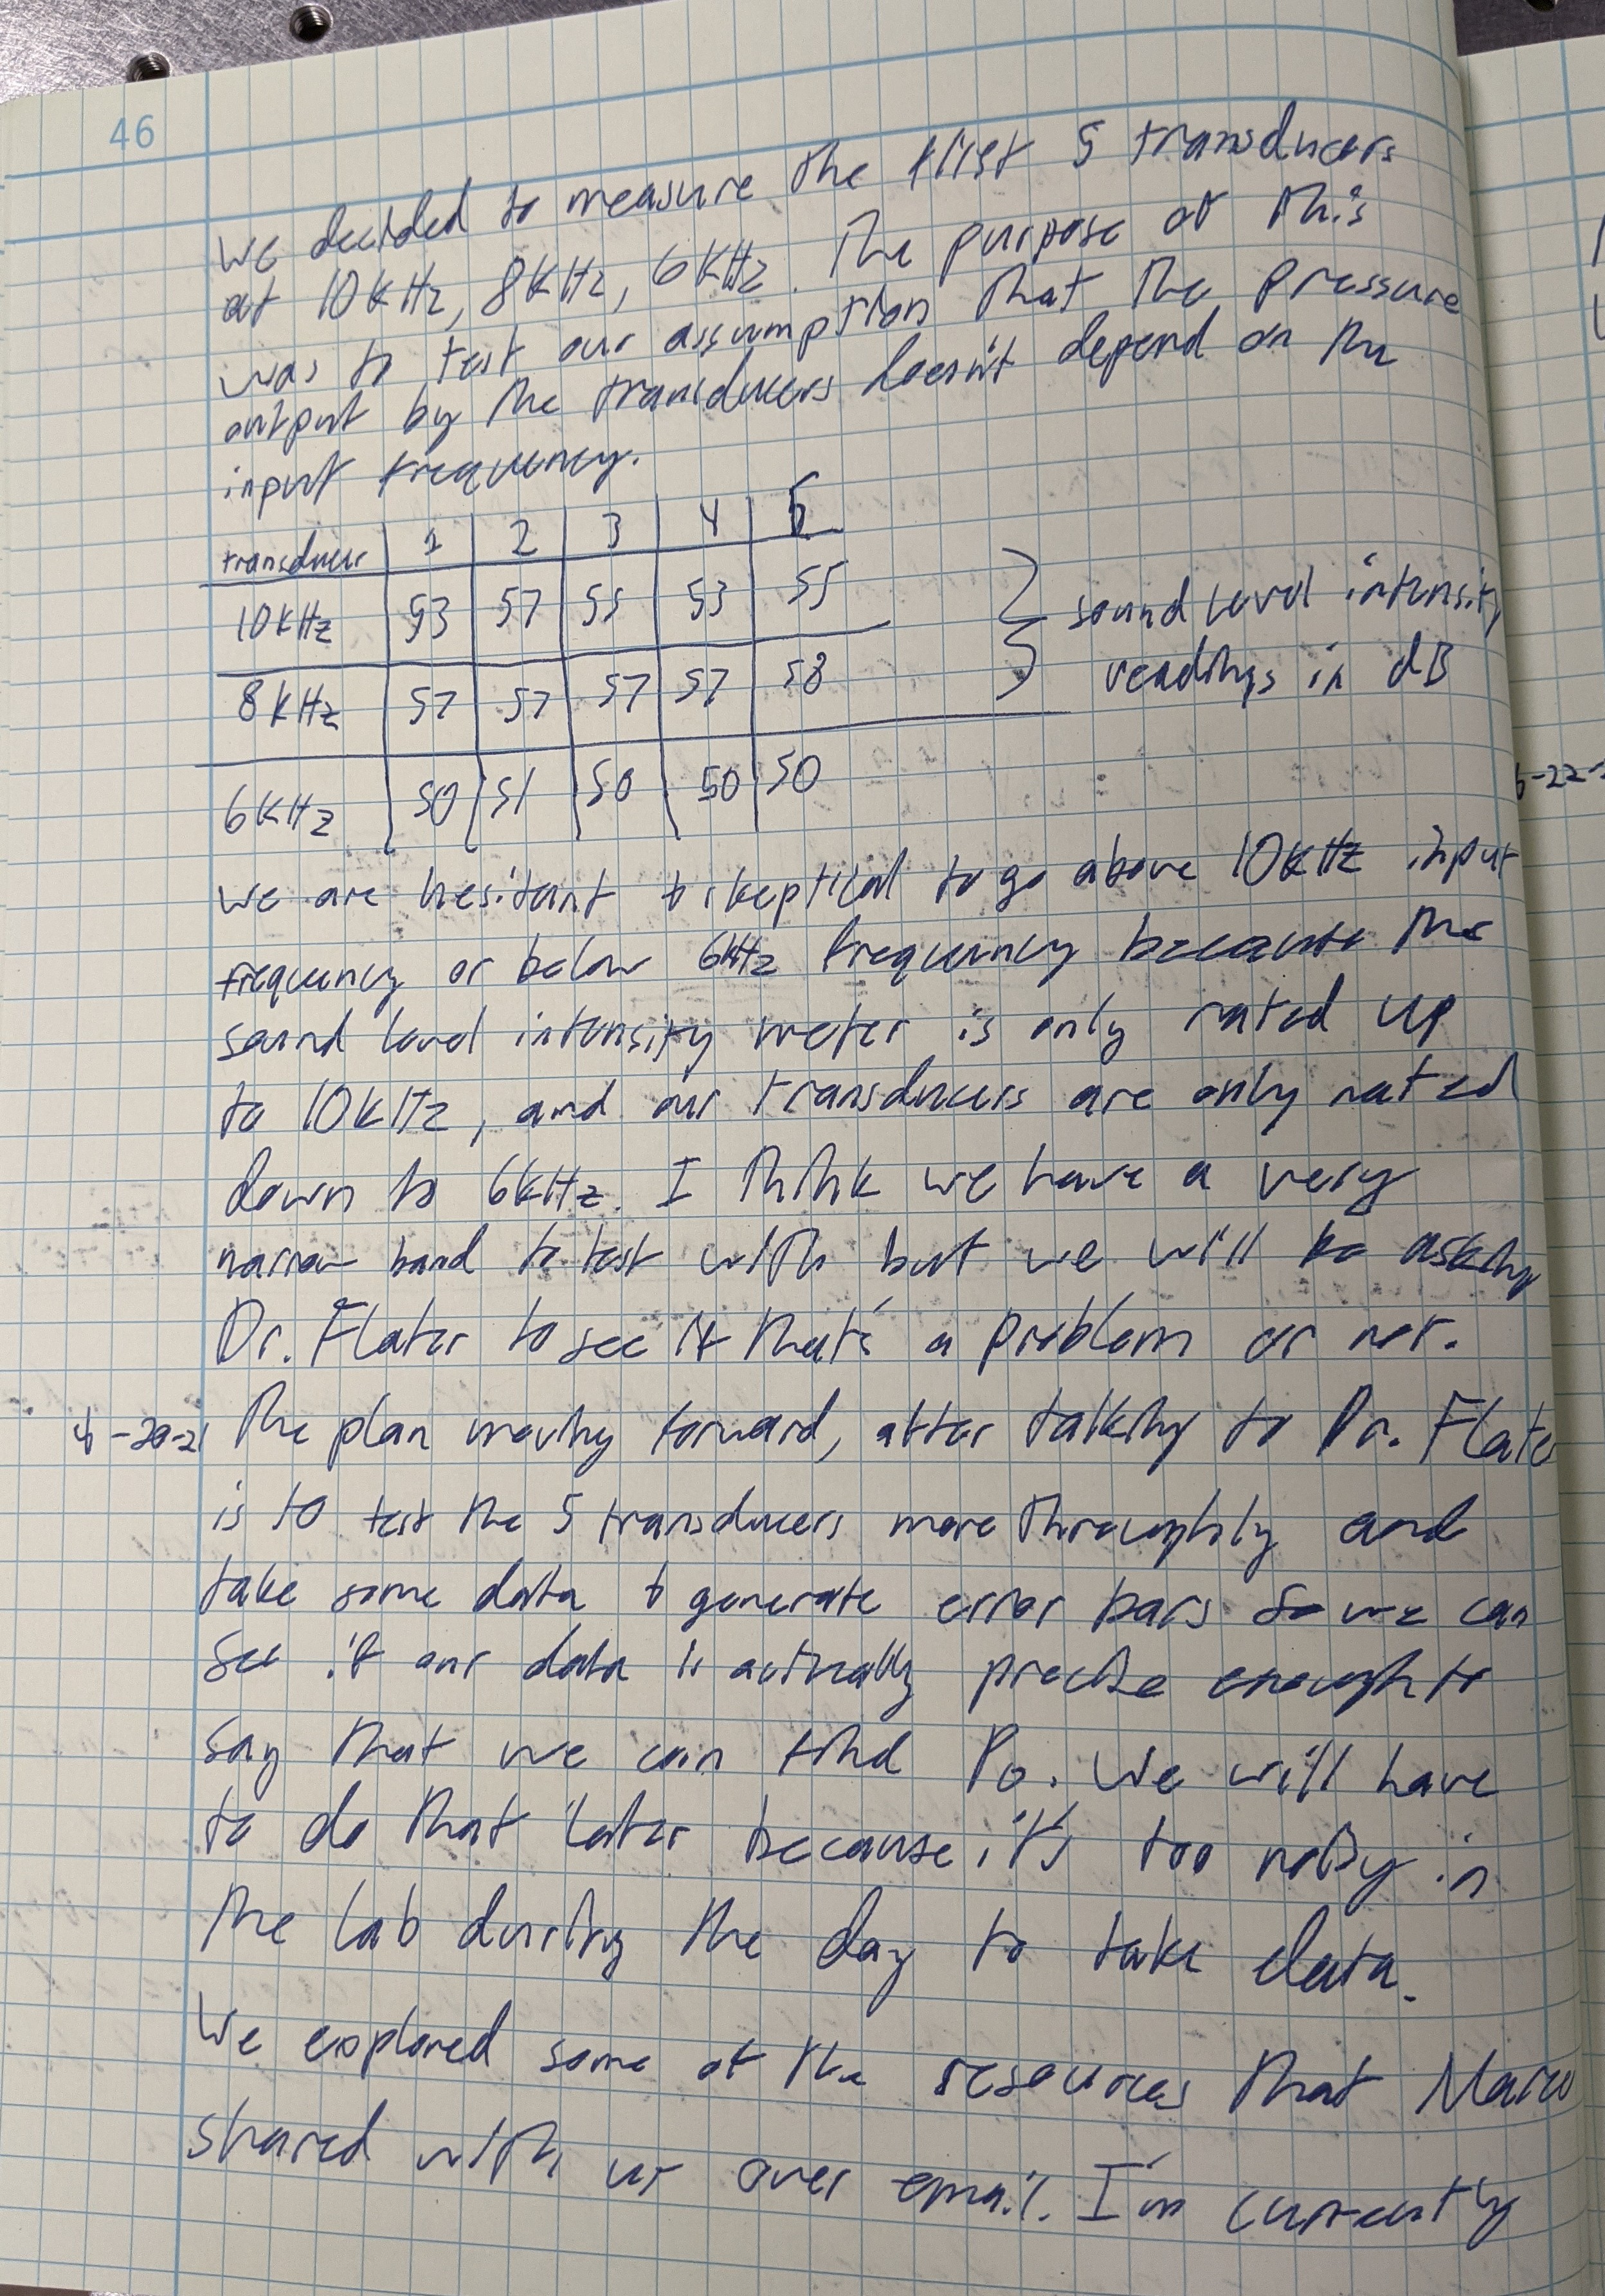 46
we decided to measure the first 5 transducers
at 10kHz, 8kHz, 6kHz. The purpose of this
was to test our assumption that the pressure
output by the transducers doesn't depend on the
input frequency.
transducer 1 2 3 4 5
10kHz 53 57 55 53 55
8kHz 57 57 57 57 58
6kHz 50 51 50 50 50
sound level intensity
readings in dB
we are hesitant + skeptical to go above 10kHz input
frequency or below 6kHz frequency because the
sound level intensity meter is only rated up
to 10kHz, and our transducers are only rated
down to 6kHz. I think we have a very
narrow band to test with but we will be asking
Dr. Flater to see if that's a problem or not.
-20-21 The plan moving forward, after talking to Dr. Flater
is to test the 5 transducers more thoroughly and
take some data + generate error bars so we can
see if our data is actually precise enough to
say that we can find P0. We will have
to do that later because it's too noisy in
the lab during the day to take data.
We explored some of the resources that Marco
shared with us over email. I'm currently
-22-